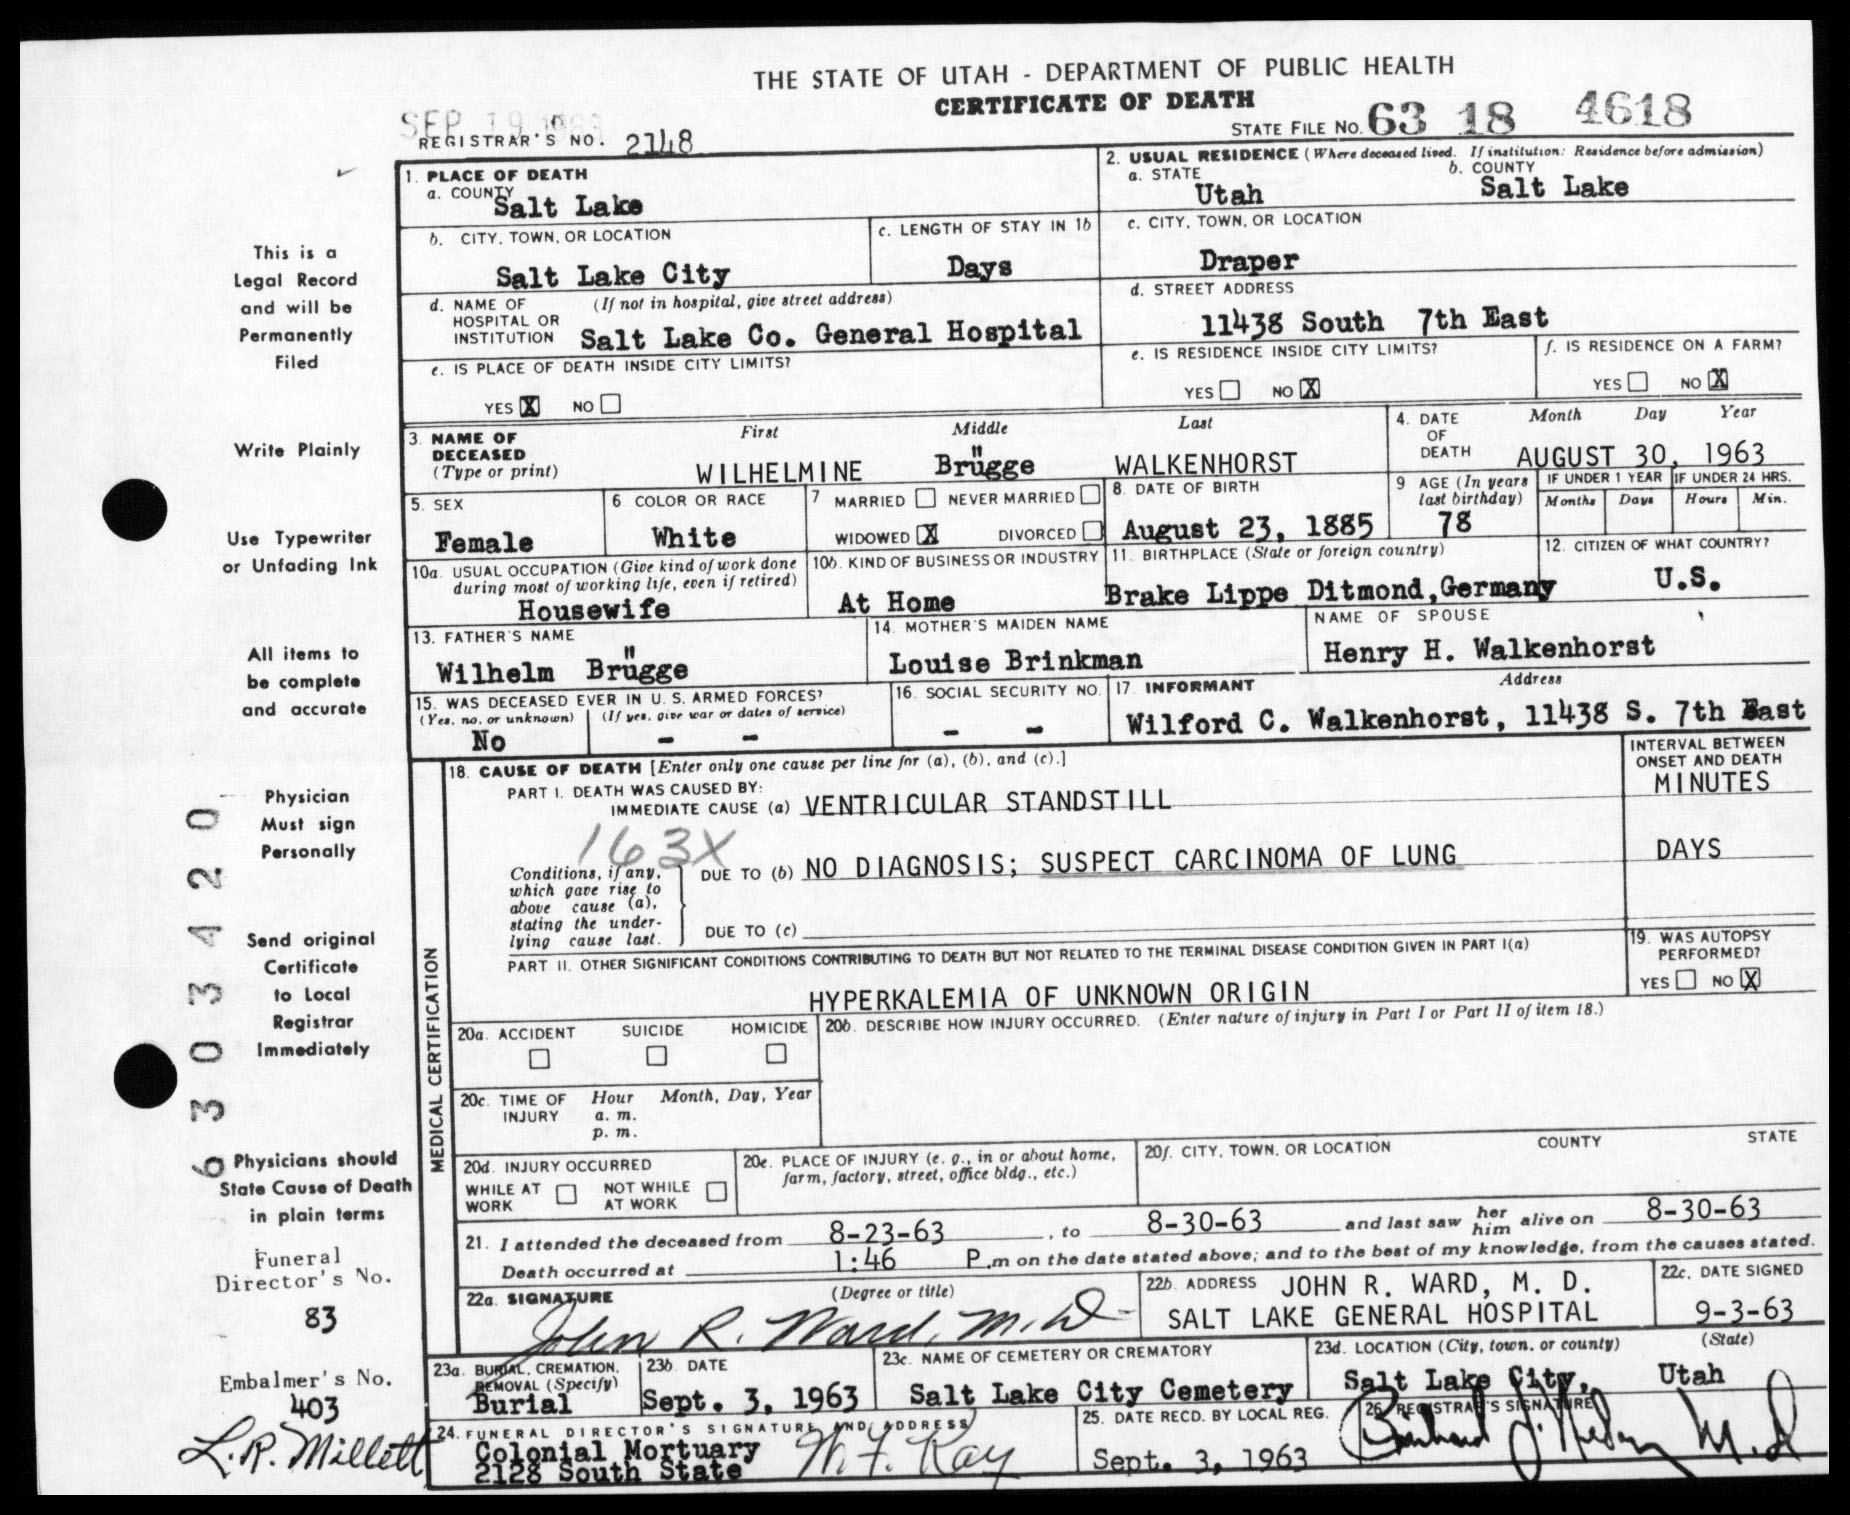 THE STATE OF UTAH - DEPARTMENT OF PUBLIC HEALTH
CERTIFICATE OF DEATH
SEP 19 1963
REGISTRAR'S NO. 2148
STATE FILE NO. 63 18 4618
This is a
Legal Record
and will be
Permanently
Filed
Write Plainly
Use Typewriter
or Unfading Ink
All items to
be complete
and accurate
Physician
Must sign
Personally
Send original
Certificate
to Local
Registrar
Immediately
Physicians should
State Cause of Death
in plain terms
Funeral
Director's No.
83
Embalmer's No.
403
L.R. Millett
6 3 0 3 4 2 0
1. PLACE OF DEATH
a. COUNTY
Salt Lake
2. USUAL RESIDENCE (Where deceased lived. If institution: Residence before admission)
a. STATE b. COUNTY
Utah Salt Lake
b. CITY, TOWN, OR LOCATION
Salt Lake City
c. LENGTH OF STAY IN 1b
Days
c. CITY, TOWN, OR LOCATION
Draper
d. NAME OF HOSPITAL OR INSTITUTION (If not in hospital, give street address)
Salt Lake Co. General Hospital
d. STREET ADDRESS
11438 South 7th East
e. IS PLACE OF DEATH INSIDE CITY LIMITS?
YES X NO
e. IS RESIDENCE INSIDE CITY LIMITS?
YES NO X
f. IS RESIDENCE ON A FARM?
YES NO X
3. NAME OF DECEASED (Type or print)
First Middle Last
WILHELMINE Brügge WALKENHORST
4. DATE OF DEATH Month Day Year
AUGUST 30, 1963
5. SEX
Female
6 COLOR OR RACE
White
7 MARRIED NEVER MARRIED
WIDOWED X DIVORCED
8. DATE OF BIRTH
August 23, 1885
9 AGE (In years last birthday)
78
IF UNDER 1 YEAR IF UNDER 24 HRS.
Months Days Hours Min.
10a. USUAL OCCUPATION (Give kind of work done during most of working life, even if retired)
Housewife
10b. KIND OF BUSINESS OR INDUSTRY
At Home
11. BIRTHPLACE (State or foreign country)
Brake Lippe Ditmond, Germany
12. CITIZEN OF WHAT COUNTRY?
U.S.
13. FATHER'S NAME
Wilhelm Brügge
14. MOTHER'S MAIDEN NAME
Louise Brinkman
NAME OF SPOUSE
Henry H. Walkenhorst
15. WAS DECEASED EVER IN U. S. ARMED FORCES?
(Yes, no, or unknown) (If yes, give war or dates of service)
No - -
16. SOCIAL SECURITY NO.
- -
17. INFORMANT Address
Wilford C. Walkenhorst, 11438 S. 7th East
MEDICAL CERTIFICATION
18. CAUSE OF DEATH [Enter only one cause per line for (a), (b), and (c).]
INTERVAL BETWEEN ONSET AND DEATH
PART I. DEATH WAS CAUSED BY:
IMMEDIATE CAUSE (a) VENTRICULAR STANDSTILL MINUTES
163X
Conditions, if any, which gave rise to above cause (a), stating the underlying cause last.
DUE TO (b) NO DIAGNOSIS; SUSPECT CARCINOMA OF LUNG DAYS
DUE TO (c)
PART II. OTHER SIGNIFICANT CONDITIONS CONTRIBUTING TO DEATH BUT NOT RELATED TO THE TERMINAL DISEASE CONDITION GIVEN IN PART I(a)
HYPERKALEMIA OF UNKNOWN ORIGIN
19. WAS AUTOPSY PERFORMED?
YES NO X
20a. ACCIDENT SUICIDE HOMICIDE
20b. DESCRIBE HOW INJURY OCCURRED. (Enter nature of injury in Part I or Part II of item 18.)
20c. TIME OF INJURY Hour Month, Day, Year
a. m.
p. m.
20d. INJURY OCCURRED
WHILE AT WORK NOT WHILE AT WORK
20e. PLACE OF INJURY (e. g., in or about home, farm, factory, street, office bldg., etc.)
20f. CITY, TOWN, OR LOCATION COUNTY STATE
21. I attended the deceased from 8-23-63, to 8-30-63 and last saw her him alive on 8-30-63
Death occurred at 1:46 P.m on the date stated above; and to the best of my knowledge, from the causes stated.
22a. SIGNATURE (Degree or title)
John R. Ward, M.D.
22b. ADDRESS JOHN R. WARD, M. D.
SALT LAKE GENERAL HOSPITAL
22c. DATE SIGNED
9-3-63
23a. BURIAL, CREMATION, REMOVAL (Specify)
Burial
23b. DATE
Sept. 3, 1963
23c. NAME OF CEMETERY OR CREMATORY
Salt Lake City Cemetery
23d. LOCATION (City, town, or county) (State)
Salt Lake City, Utah
24. FUNERAL DIRECTOR'S SIGNATURE AND ADDRESS
Colonial Mortuary
2128 South State
W. F. Kay
25. DATE RECD. BY LOCAL REG.
Sept. 3, 1963
26. REGISTRAR'S SIGNATURE
M.D